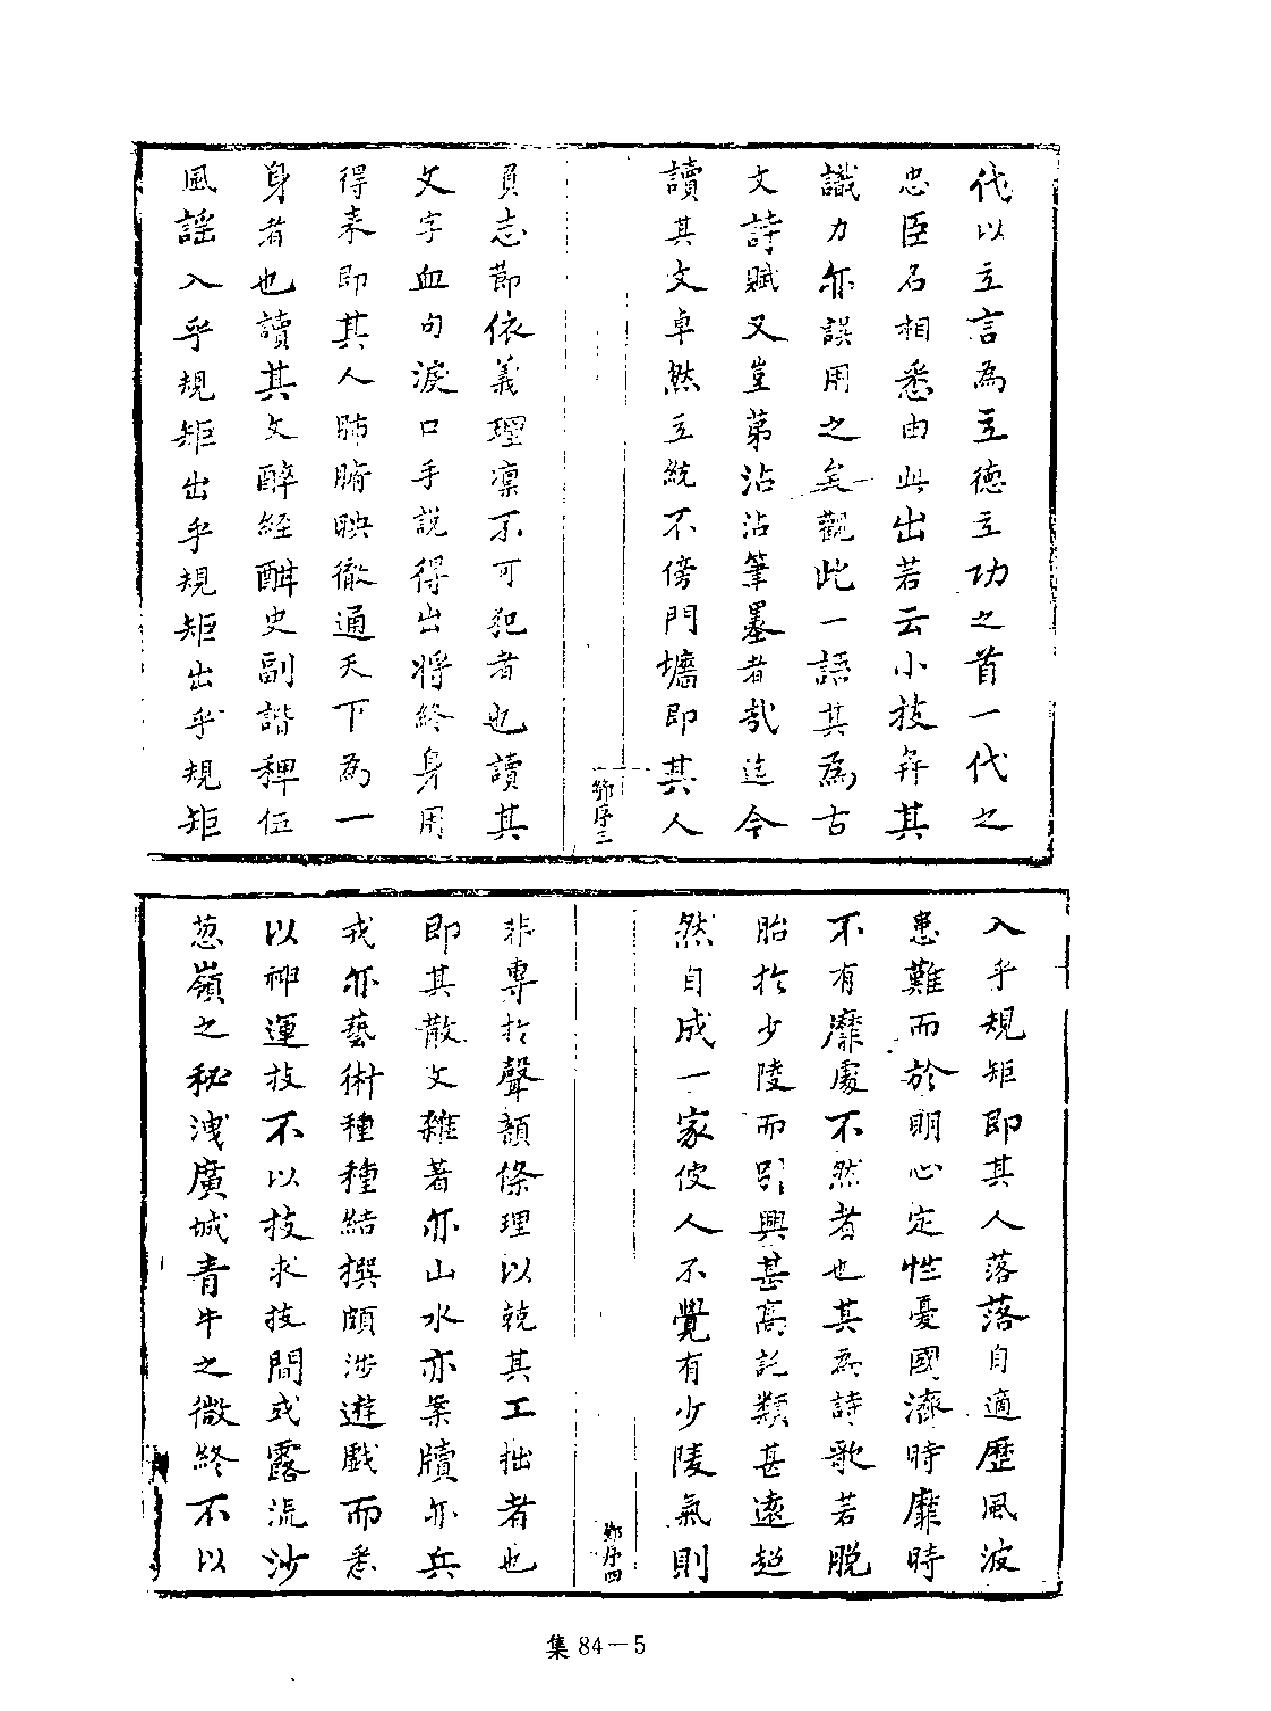 代以立言為立德立功之首一代之
忠臣名相悉由此出若云小技弁其
識力亦誤用之矣觀此一語其為古
文詩賦又豈苐沾沾筆墨者哉迄今
讀其文卓然立統不傍門墻即其人
鄧序三
負志節依義理凛不可犯者也讀其
文字血句淚口手説得出將終身用
得来即其人肺腑映徹通天下為一
身者也讀其文醉經酣史副諧稗伍
風謡入乎規矩出乎規矩出乎規矩
入乎規矩即其人落落自適歷風波
患難而於明心定性憂國濟時靡時
不有靡處不然者也其為詩歌若脱
胎於少陵而引興甚高託類甚遠超
然自成一家使人不覺有少陵氣則
鄧序四
非專於聲韻條理以競其工拙者也
即其散文雜著亦山水亦案牘亦兵
戎亦藝術種種結撰頗涉遊戲而悉
以神運技不以技求技間或露流沙
葱嶺之秘洩廣城青牛之微終不以
集 84—5